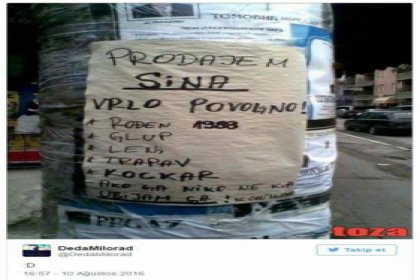 PRODAJEM
SINA
VRLO POVOLJNO!
* ROĐEN 1988
* GLUP
* LENJ
* TRAPAV
* KOCKAR
AKO GA NIKO NE
UBIJAM GA
toza
DedaMilorad
@DedaMilorad
Takip et
:D
16:57 - 10 Ağustos 2016